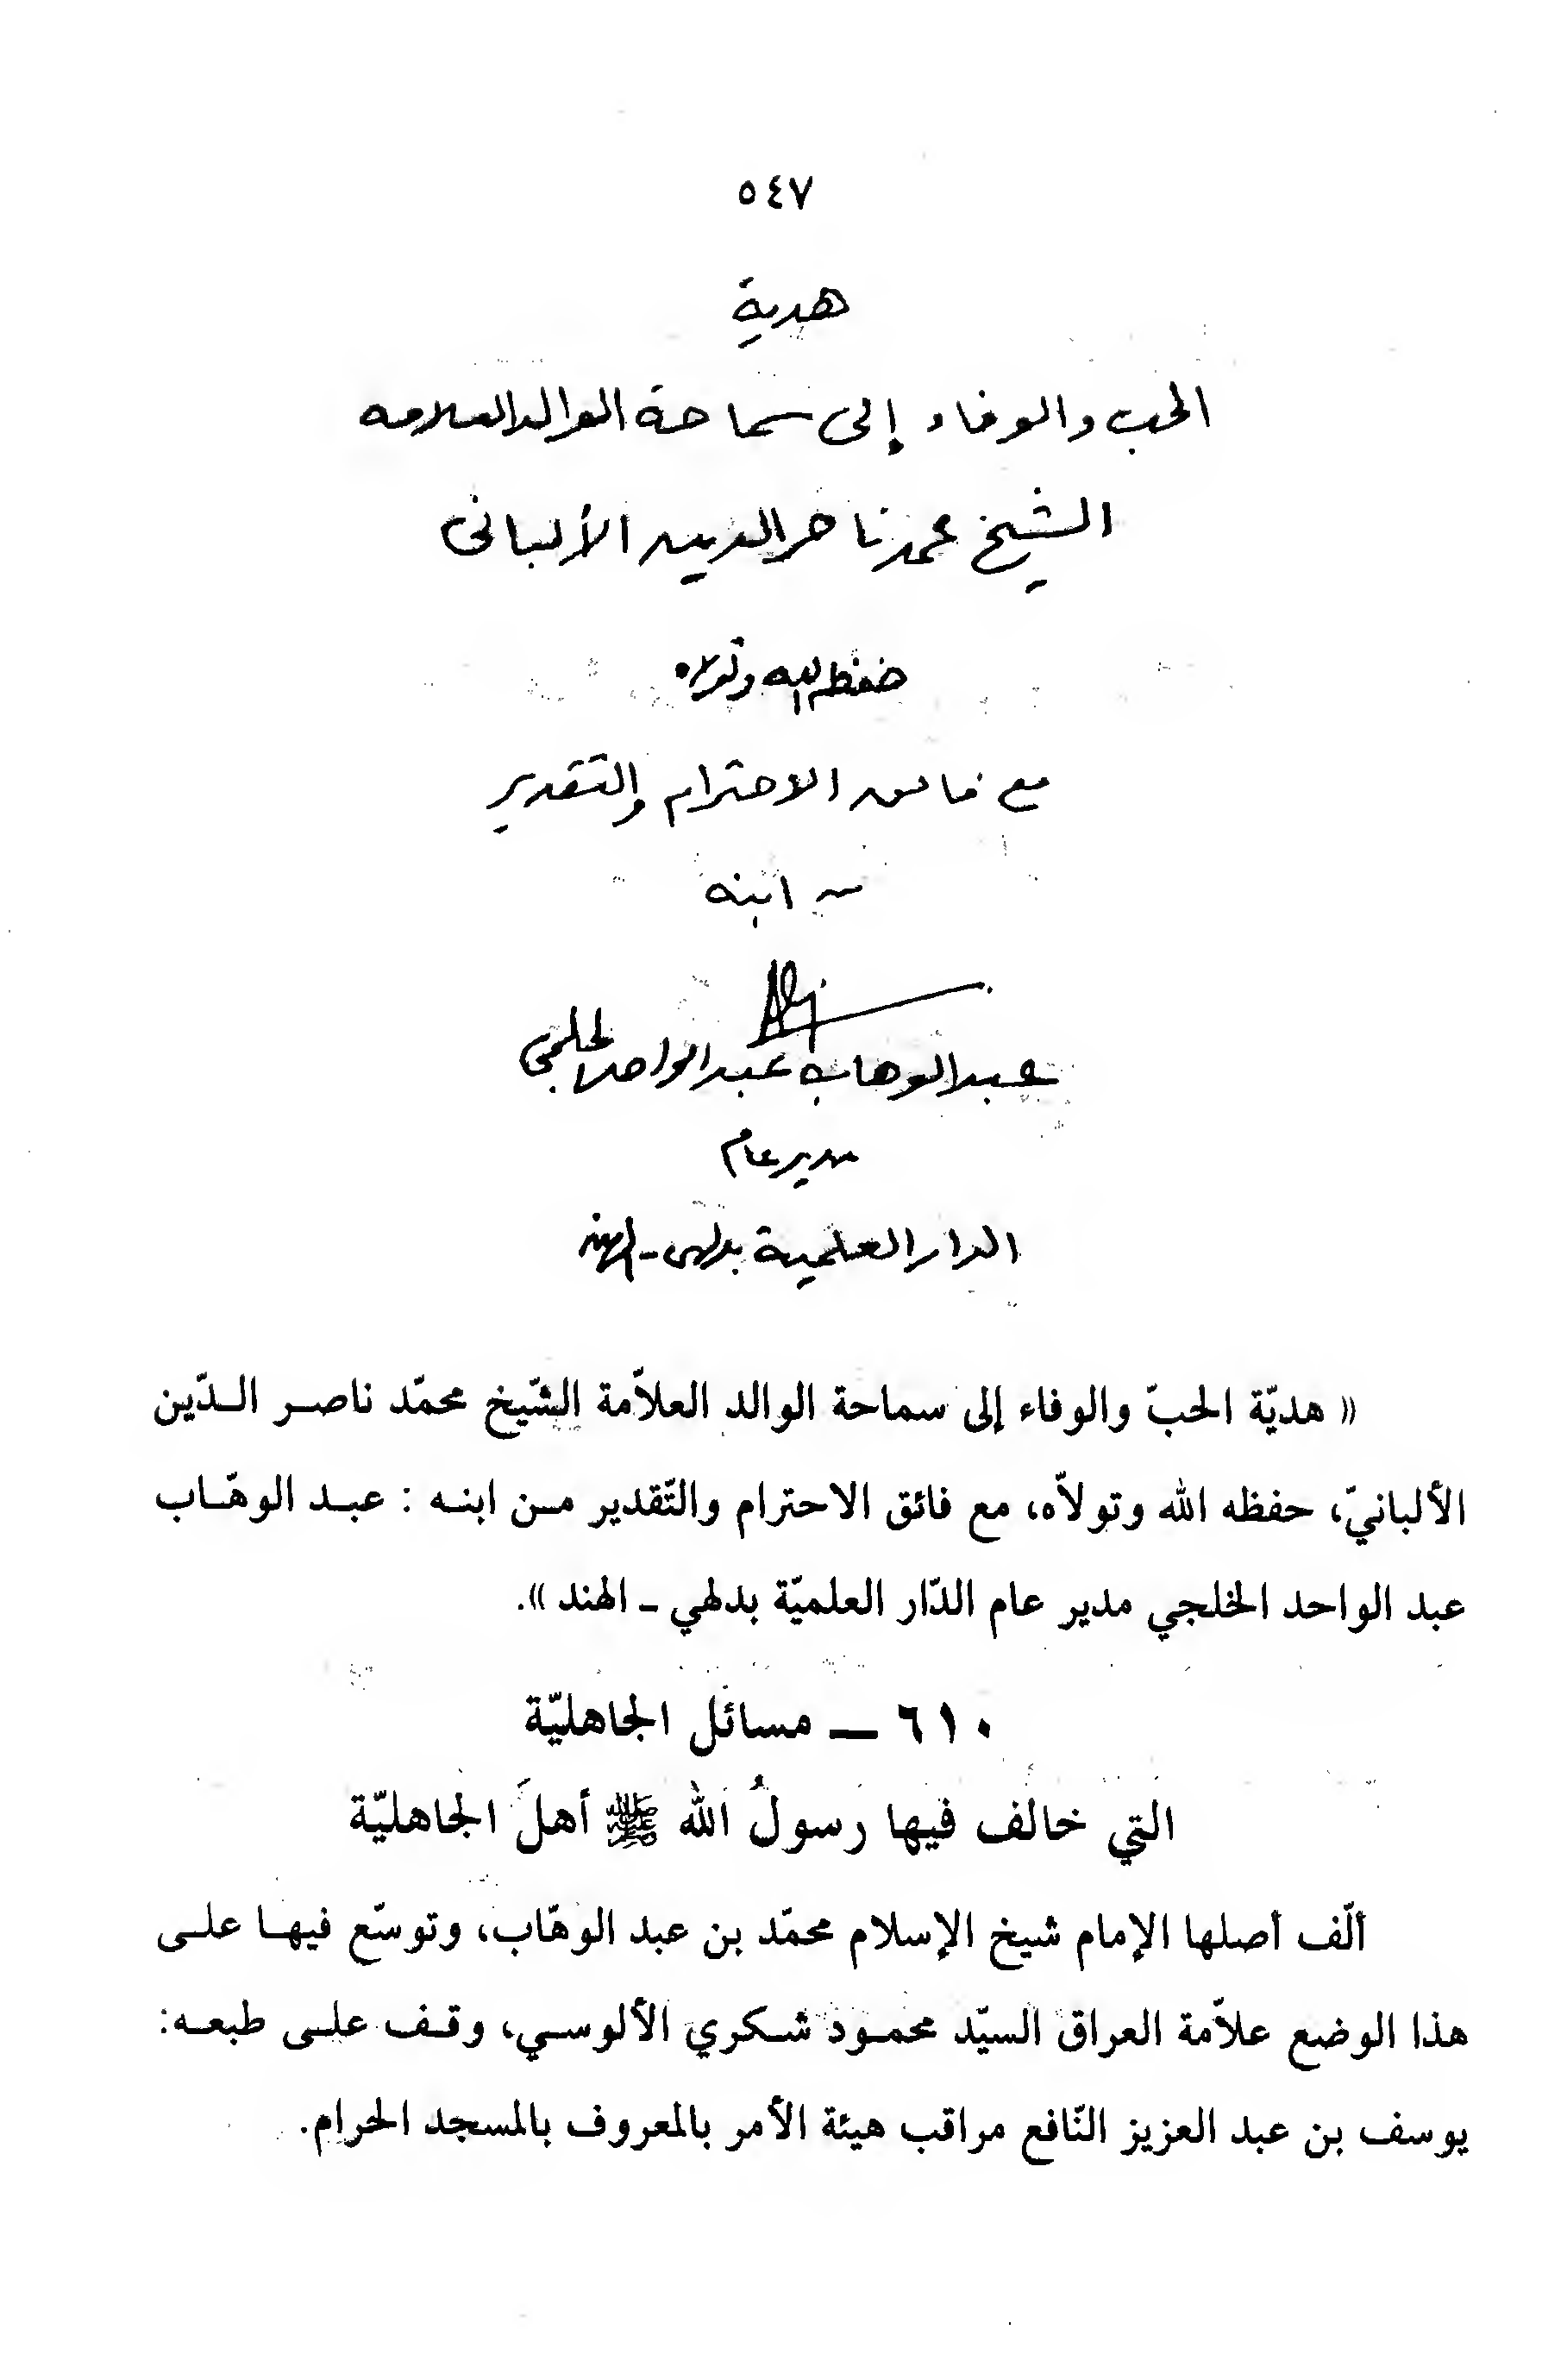 ٥٤٧
هدية
الحب والوفاء إلى سماحة الوالد العلامة
الشيخ محمد ناصر الدين الألباني
حفظه الله وتولاه
مع فائق الاحترام والتقدير
من ابنه
عبد الوهاب عبد الواحد الخلجي
مدير عام
الدار العلمية بدلهي - الهند
« هديّة الحبّ والوفاء إلى سماحة الوالد العلاّمة الشّيخ محمّد ناصر الدّين
الألبانيّ، حفظه الله وتولاّه، مع فائق الاحترام والتّقدير من ابنه : عبد الوهّاب
عبد الواحد الخلجي مدير عام الدّار العلميّة بدلهي ـ الهند ».
٦١٠ — مسائل الجاهليّة
التي خالف فيها رسولُ الله ﷺ أهلَ الجاهليّة
ألّف أصلها الإمام شيخ الإسلام محمّد بن عبد الوهّاب، وتوسّع فيها على
هذا الوضع علاّمة العراق السيّد محمود شكري الألوسي، وقف على طبعه:
يوسف بن عبد العزيز النّافع مراقب هيئة الأمر بالمعروف بالمسجد الحرام.